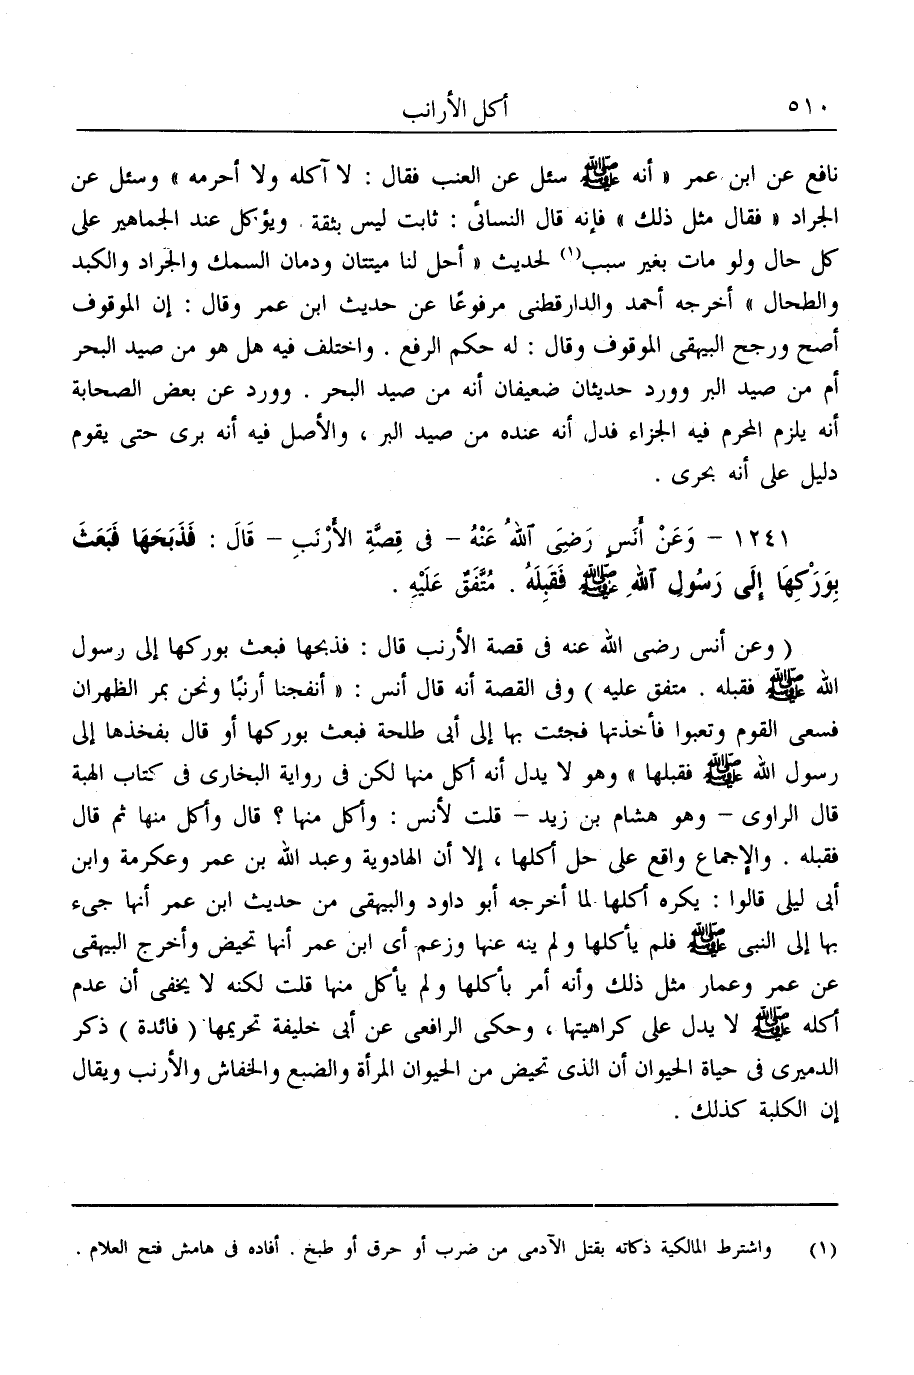 ٥١٠ أكل الأرانب
نافع عن ابن عمر « أنه ﷺ سئل عن العنب فقال : لا آكله ولا أحرمه » وسئل عن
الجراد « فقال مثل ذلك » فإنه قال النسائى : ثابت ليس بثقة . ويؤكل عند الجماهير على
كل حال ولو مات بغير سبب(١) لحديث « أحل لنا ميتتان ودمان السمك والجراد والكبد
والطحال » أخرجه أحمد والدارقطنى مرفوعًا عن حديث ابن عمر وقال : إن الموقوف
أصح ورجح البيهقى الموقوف وقال : له حكم الرفع . واختلف فيه هل هو من صيد البحر
أم من صيد البر وورد حديثان ضعيفان أنه من صيد البحر . وورد عن بعض الصحابة
أنه يلزم المحرم فيه الجزاء فدل أنه عنده من صيد البر ، والأصل فيه أنه برى حتى يقوم
دليل على أنه بحرى .
١٢٤١ – وَعَنْ أَنَسٍ رَضِيَ ٱللهُ عَنْهُ – فى قِصَّةِ الأَرْنَبِ – قَالَ : فَذَبَحَهَا فَبَعَثَ
بِوَرَكِهَا إِلَى رَسُولِ ٱللهِ ﷺ فَقَبِلَهُ . مُتَّفَقٌ عَلَيْهِ .
( وعن أنس رضى الله عنه فى قصة الأرنب قال : فذبحها فبعث بوركها إلى رسول
الله ﷺ فقبله . متفق عليه ) وفى القصة أنه قال أنس : « أنفجنا أرنبًا ونحن بمر الظهران
فسعى القوم وتعبوا فأخذتها فجئت بها إلى أبى طلحة فبعث بوركها أو قال بفخذها إلى
رسول الله ﷺ فقبلها » وهو لا يدل أنه أكل منها لكن فى رواية البخارى فى كتاب الهبة
قال الراوى – وهو هشام بن زيد – قلت لأنس : وأكل منها ؟ قال وأكل منها ثم قال
فقبله . والإجماع واقع على حل أكلها ، إلا أن الهادوية وعبد الله بن عمر وعكرمة وابن
أبى ليلى قالوا : يكره أكلها لما أخرجه أبو داود والبيهقى من حديث ابن عمر أنها جىء
بها إلى النبى ﷺ فلم يأكلها ولم ينه عنها وزعم أى ابن عمر أنها تحيض وأخرج البيهقى
عن عمر وعمار مثل ذلك وأنه أمر بأكلها ولم يأكل منها قلت لكنه لا يخفى أن عدم
أكله ﷺ لا يدل على كراهيتها ، وحكى الرافعى عن أبى خليفة تحريمها ( فائدة ) ذكر
الدميرى فى حياة الحيوان أن الذى تحيض من الحيوان المرأة والضبع والخفاش والأرنب ويقال
إن الكلبة كذلك .
(١) واشترط المالكية ذكاته بقتل الآدمى من ضرب أو حرق أو طبخ . أفاده فى هامش فتح العلام .